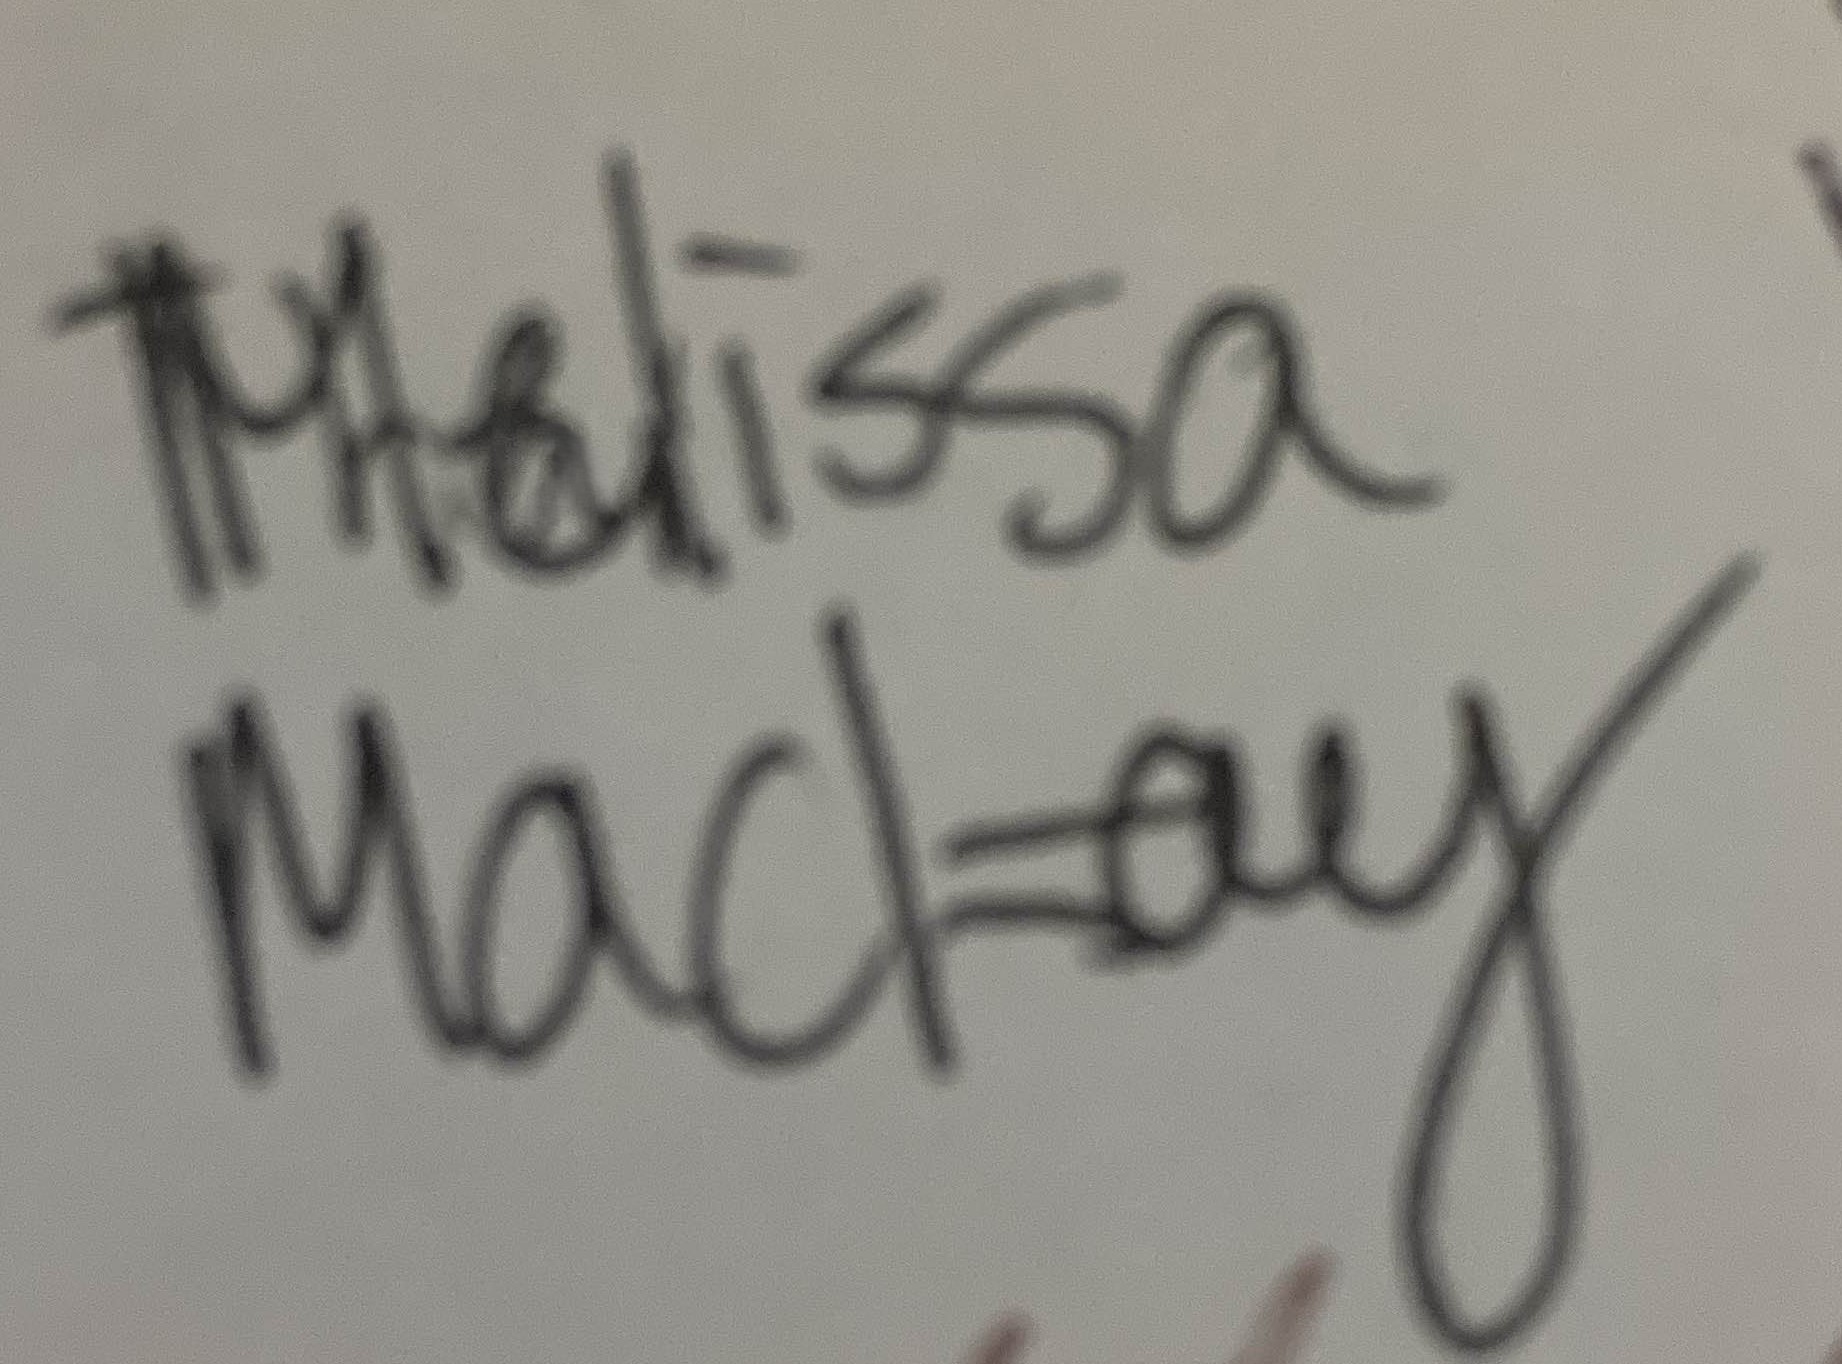 Melissa
Maclay